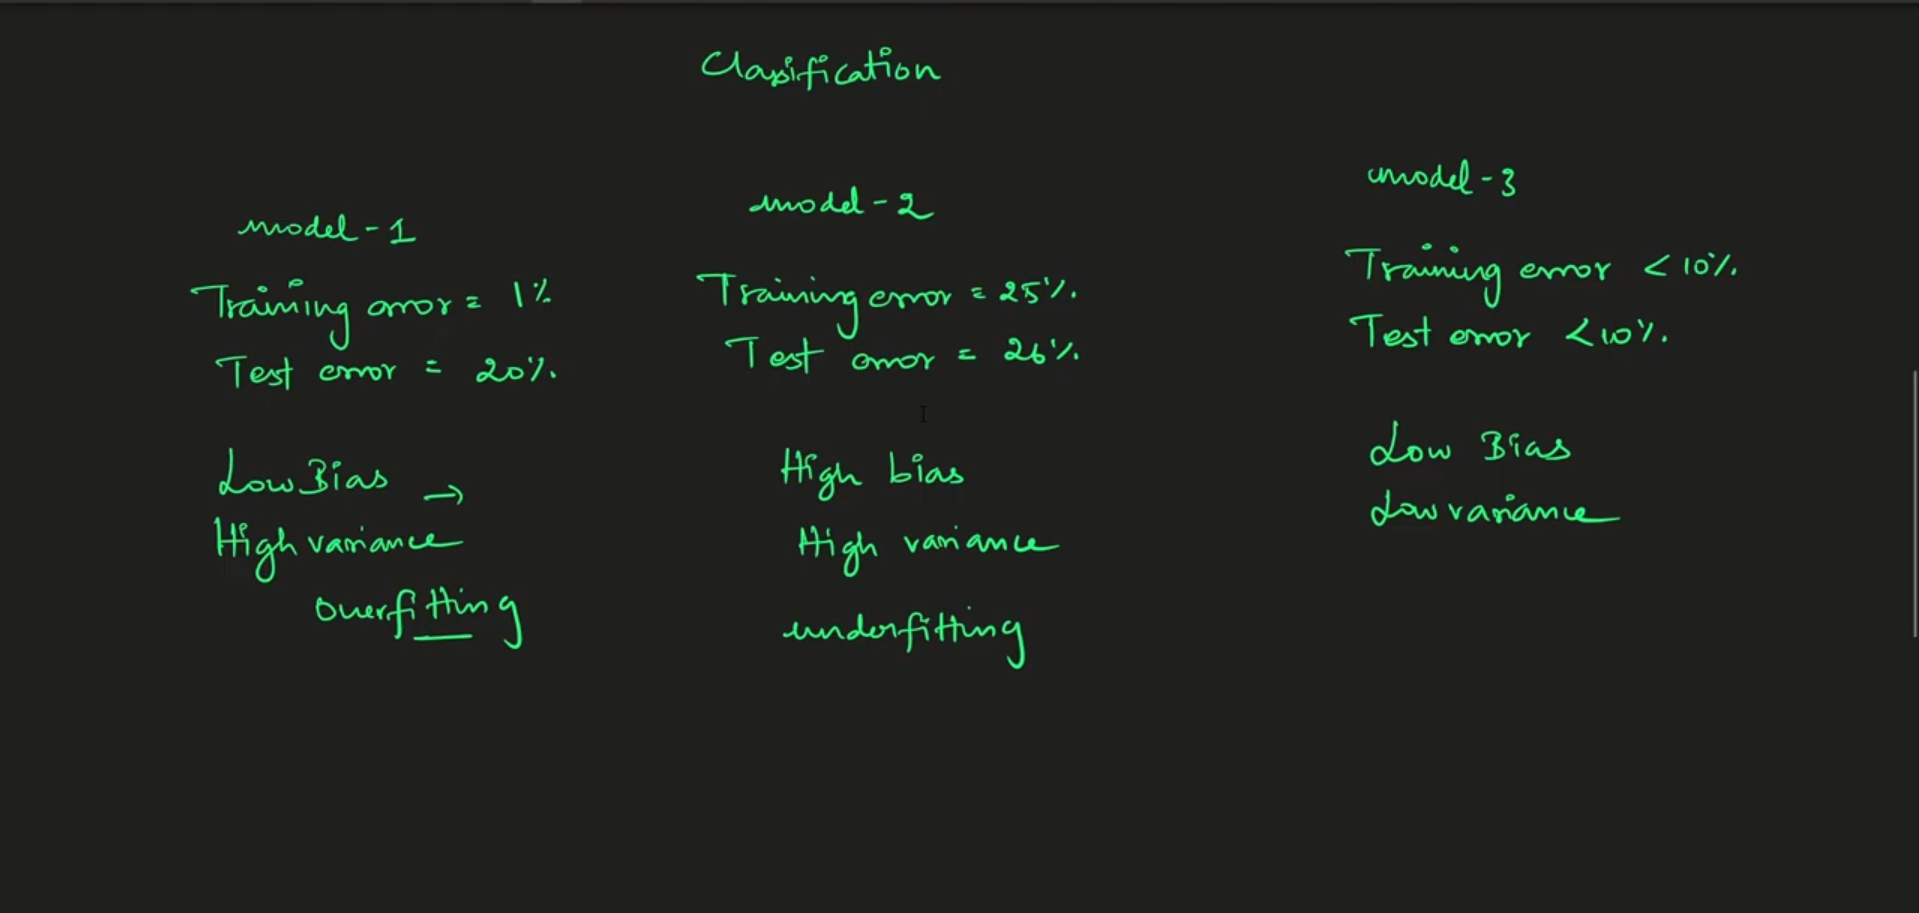 Classification
model-1
Training error = 1%
Test error = 20%.
Low Bias →
High variance
overfitting
model-2
Training error = 25%.
Test error = 26%.
High bias
High variance
underfitting
model-3
Training error < 10%.
Test error < 10%.
Low Bias
Low variance